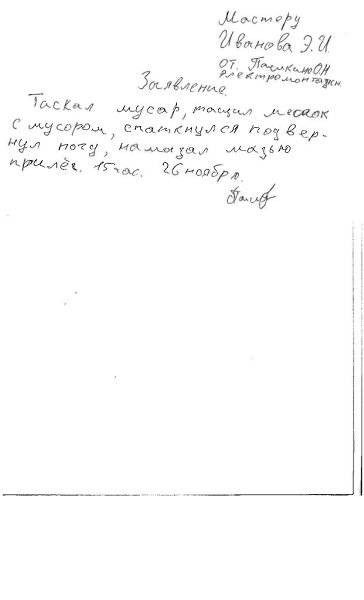 Мастеру
Иванова Э.И.
от. Пашкино О.Н
электромонтажн.
Заявление.
Таскал мусар, тащил мешок
с мусором, споткнулся подвер-
нул ногу, намазал мазью
прилёг. 15 час. 26 ноября.